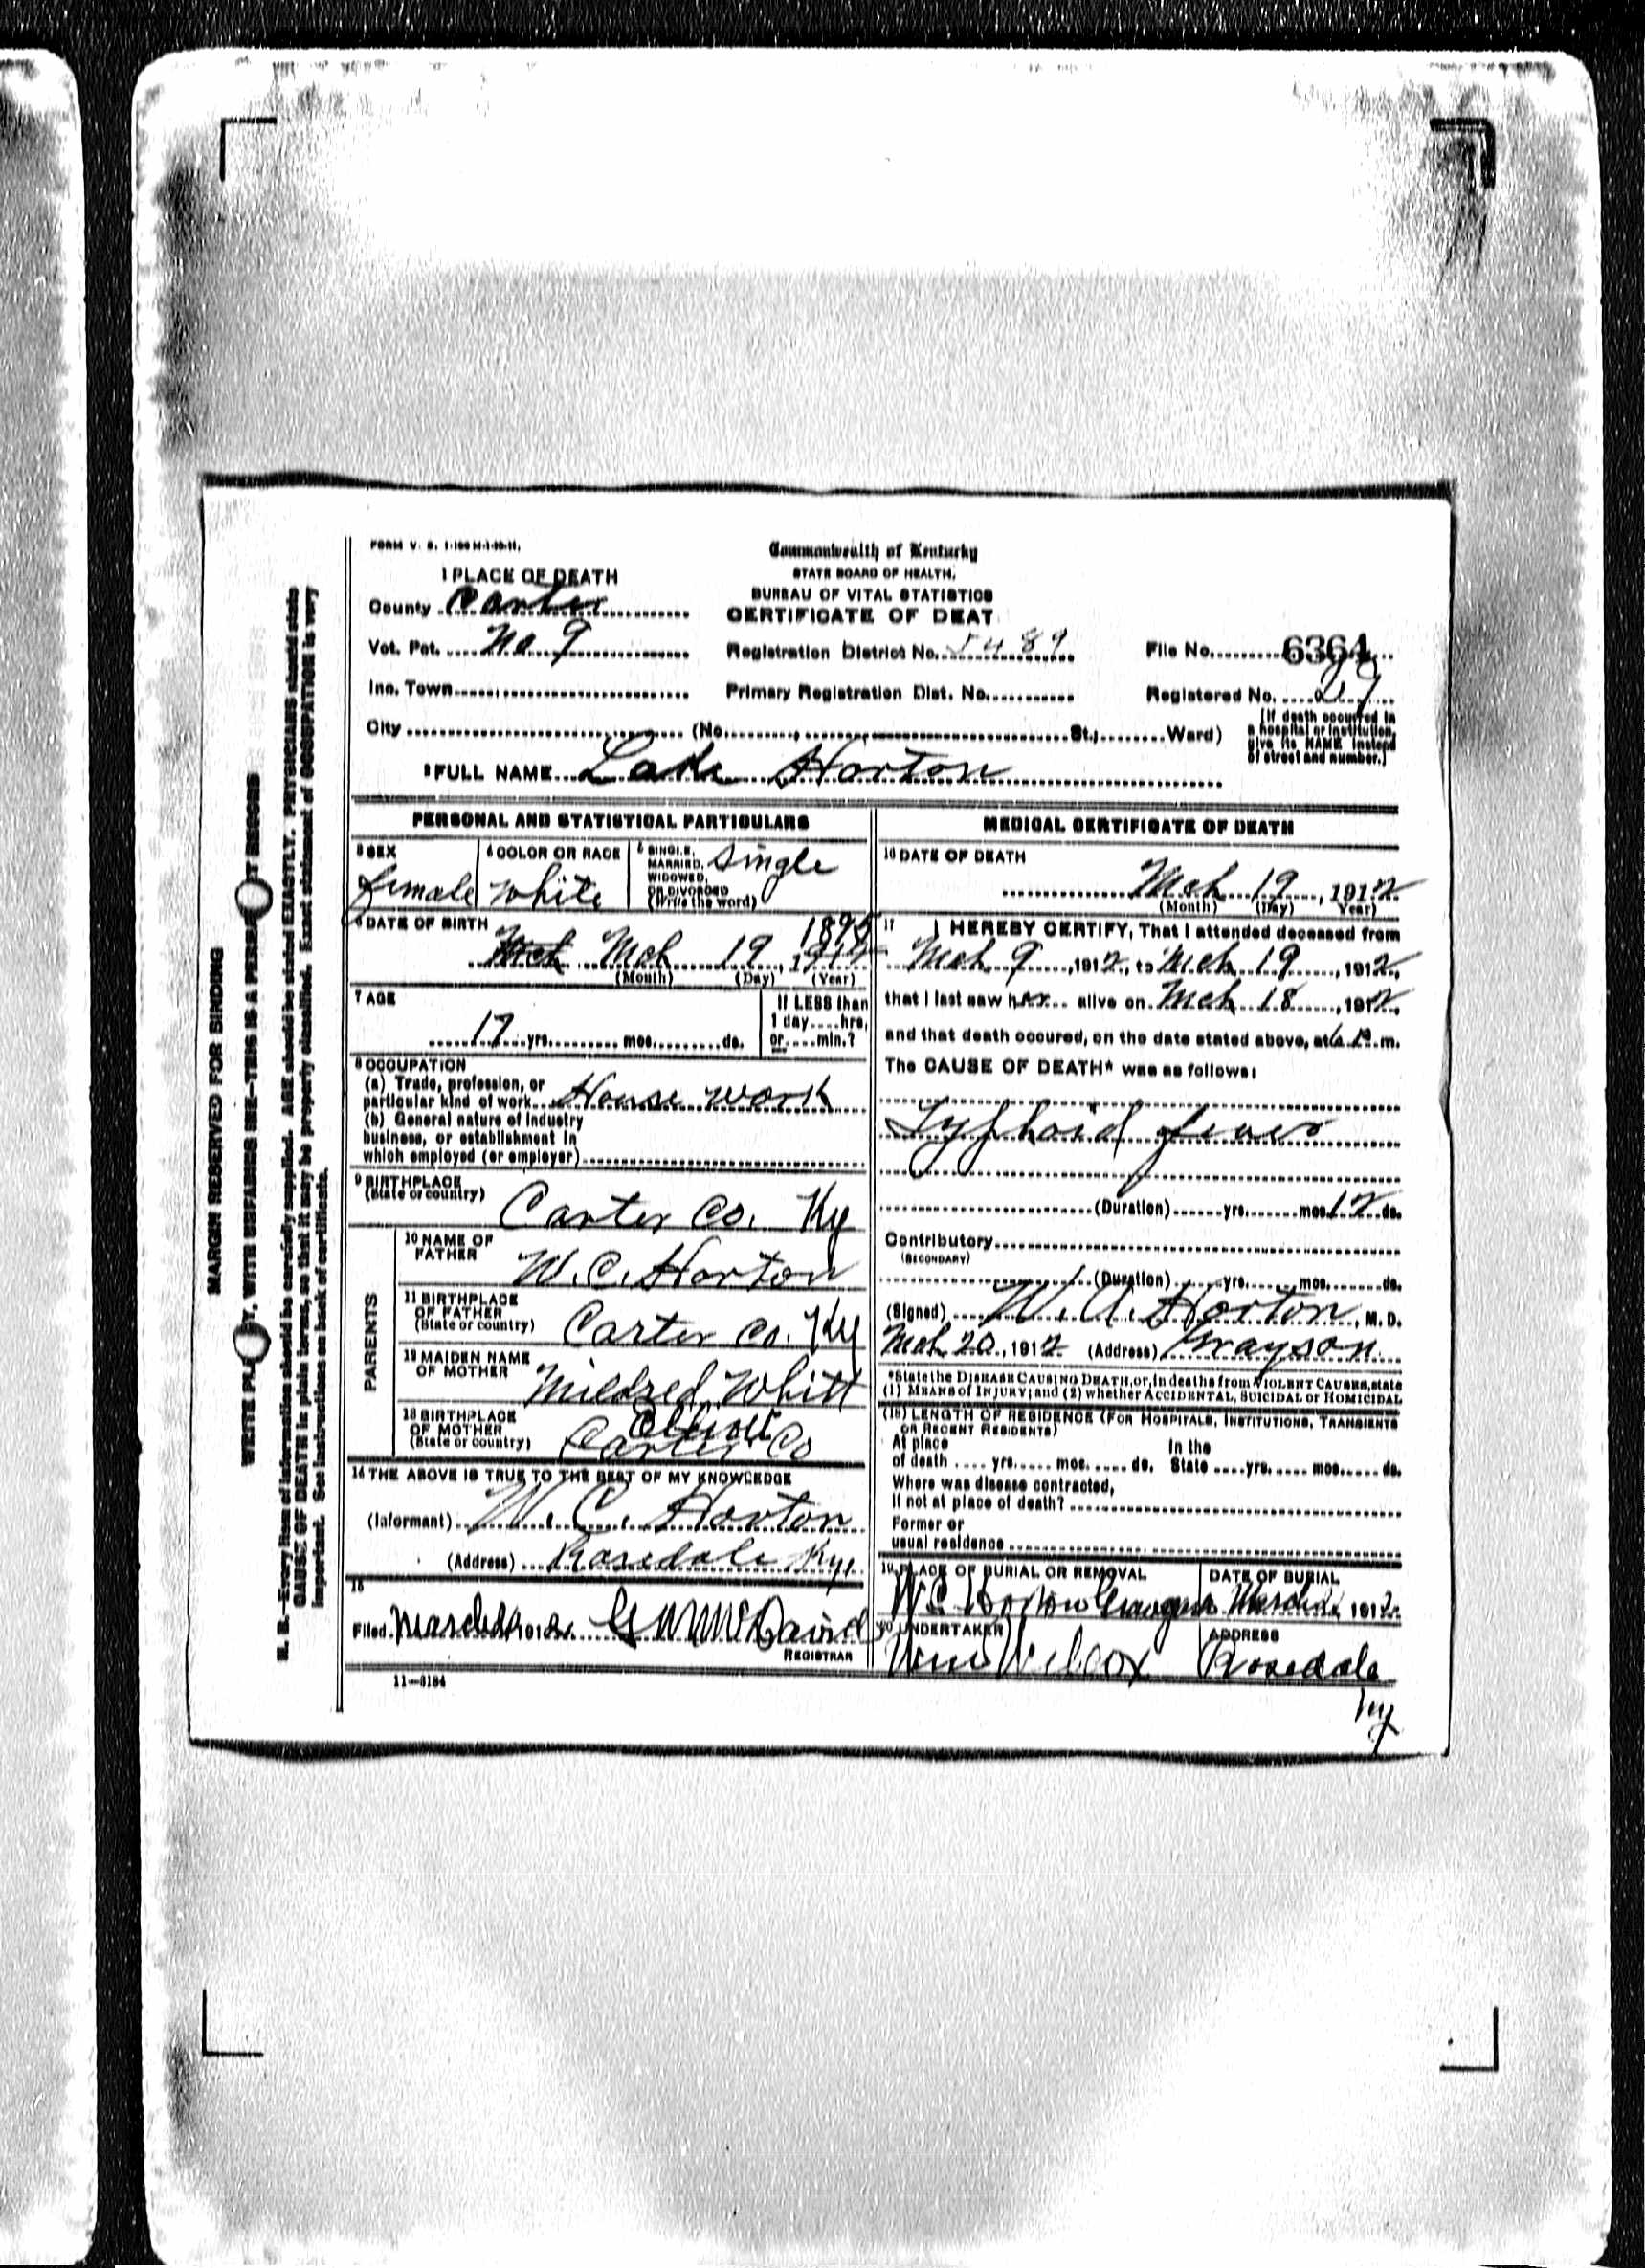 FORM V. S. 1-100 M-1-20-11.
Commonwealth of Kentucky
STATE BOARD OF HEALTH,
BUREAU OF VITAL STATISTICS
CERTIFICATE OF DEAT
1 PLACE OF DEATH
County Carter
Vot. Pct. No 9
Registration District No. 5489
File No. 6364
Inc. Town
Primary Registration Dist. No.
Registered No. 29
City (No. St.; Ward)
[If death occurred in
a hospital or institution,
give its NAME instead
of street and number.]
2 FULL NAME Lake Horton
PERSONAL AND STATISTICAL PARTICULARS
3 SEX
female
4 COLOR OR RACE
white
5 SINGLE,
MARRIED,
WIDOWED,
OR DIVORCED
(Write the word)
single
6 DATE OF BIRTH
1895
Mch Mch 19, 1912
(Month) (Day) (Year)
7 AGE
17 yrs. mos. ds.
If LESS than
1 day hrs,
or min.?
8 OCCUPATION
(a) Trade, profession, or
particular kind of work House work
(b) General nature of industry
business, or establishment in
which employed (or employer)
9 BIRTHPLACE
(State or country)
Carter Co. Ky
PARENTS
10 NAME OF
FATHER
W. C. Horton
11 BIRTHPLACE
OF FATHER
(State or country)
Carter Co. Ky
12 MAIDEN NAME
OF MOTHER
Mildred Whitt
13 BIRTHPLACE
OF MOTHER
(State or country)
Elliott
Carter Co
14 THE ABOVE IS TRUE TO THE BEST OF MY KNOWLEDGE
(Informant) W. C. Horton
(Address) Rosedale Ky.
15
Filed March 191
REGISTRAR
11-3184
MEDICAL CERTIFICATE OF DEATH
16 DATE OF DEATH
Mch 19, 1912
(Month) (Day) Year)
17 I HEREBY CERTIFY, That I attended deceased from
Mch 9, 1912, to Mch 19, 1912,
that I last saw her alive on Mch 18, 1912,
and that death occured, on the date stated above, at m.
The CAUSE OF DEATH* was as follows:
Typhoid fever
(Duration) yrs. mos. 12 ds.
Contributory
(SECONDARY)
(Duration) yrs. mos. ds.
(Signed) W. A. Horton, M. D.
Mch 20, 1912 (Address) Grayson
*State the DISEASE CAUSING DEATH, or, in deaths from VIOLENT CAUSES, state
(1) MEANS of INJURY; and (2) whether ACCIDENTAL, SUICIDAL or HOMICIDAL
(18) LENGTH OF RESIDENCE (FOR HOSPITALS, INSTITUTIONS, TRANSIENTS
OR RECENT RESIDENTS)
At place
of death yrs. mos. ds.
In the
State yrs. mos. ds.
Where was disease contracted,
If not at place of death?
Former or
usual residence
19 PLACE OF BURIAL OR REMOVAL
W C Horton
DATE OF BURIAL
March 1912
20 UNDERTAKER
Wm Wilcox
ADDRESS
Rosedale
Ky
MARGIN RESERVED FOR BINDING
N. B.-Every item of information should be carefully supplied. AGE should be stated EXACTLY. PHYSICIANS should state
CAUSE OF DEATH in plain terms, so that it may be properly classified. Exact statement of OCCUPATION is very
important. See instructions on back of certificate.